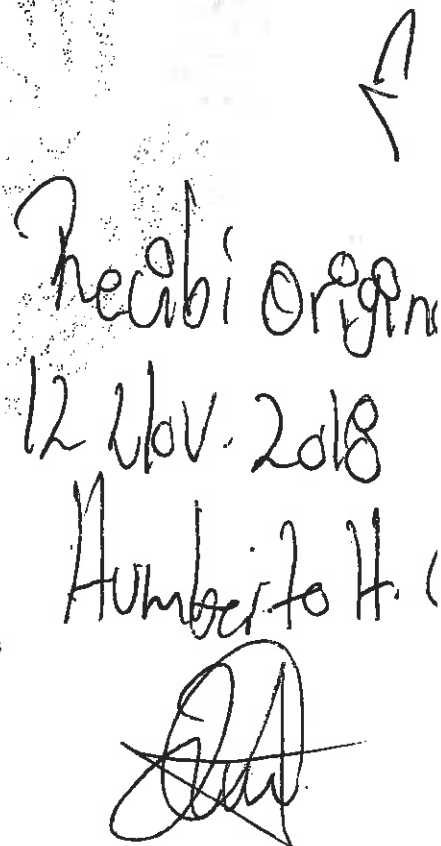 Recibí Origin
12 Nov. 2018
Humberto H. (